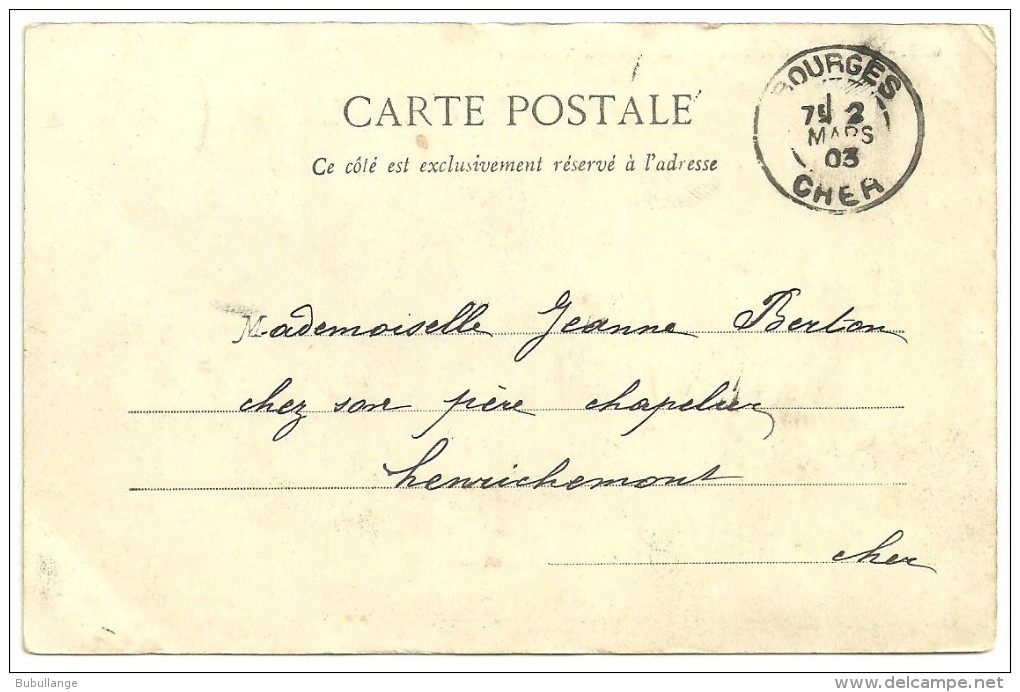 CARTE POSTALE
Ce côté est exclusivement réservé à l'adresse
BOURGES
7E 2
MARS
03
CHER
Mademoiselle Jeanne Berton
chez son père chapelier
henrichemont
cher
Bubullange
delcampe.net